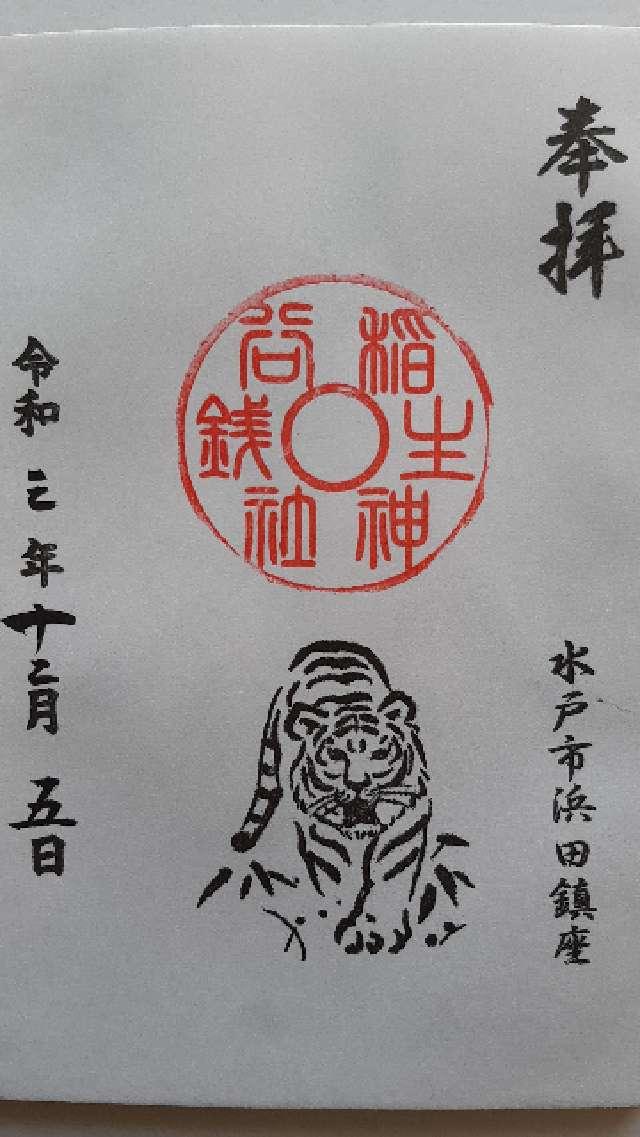 奉拝
水戸市浜田鎮座
銭谷稲生神社
令和三年十二月五日